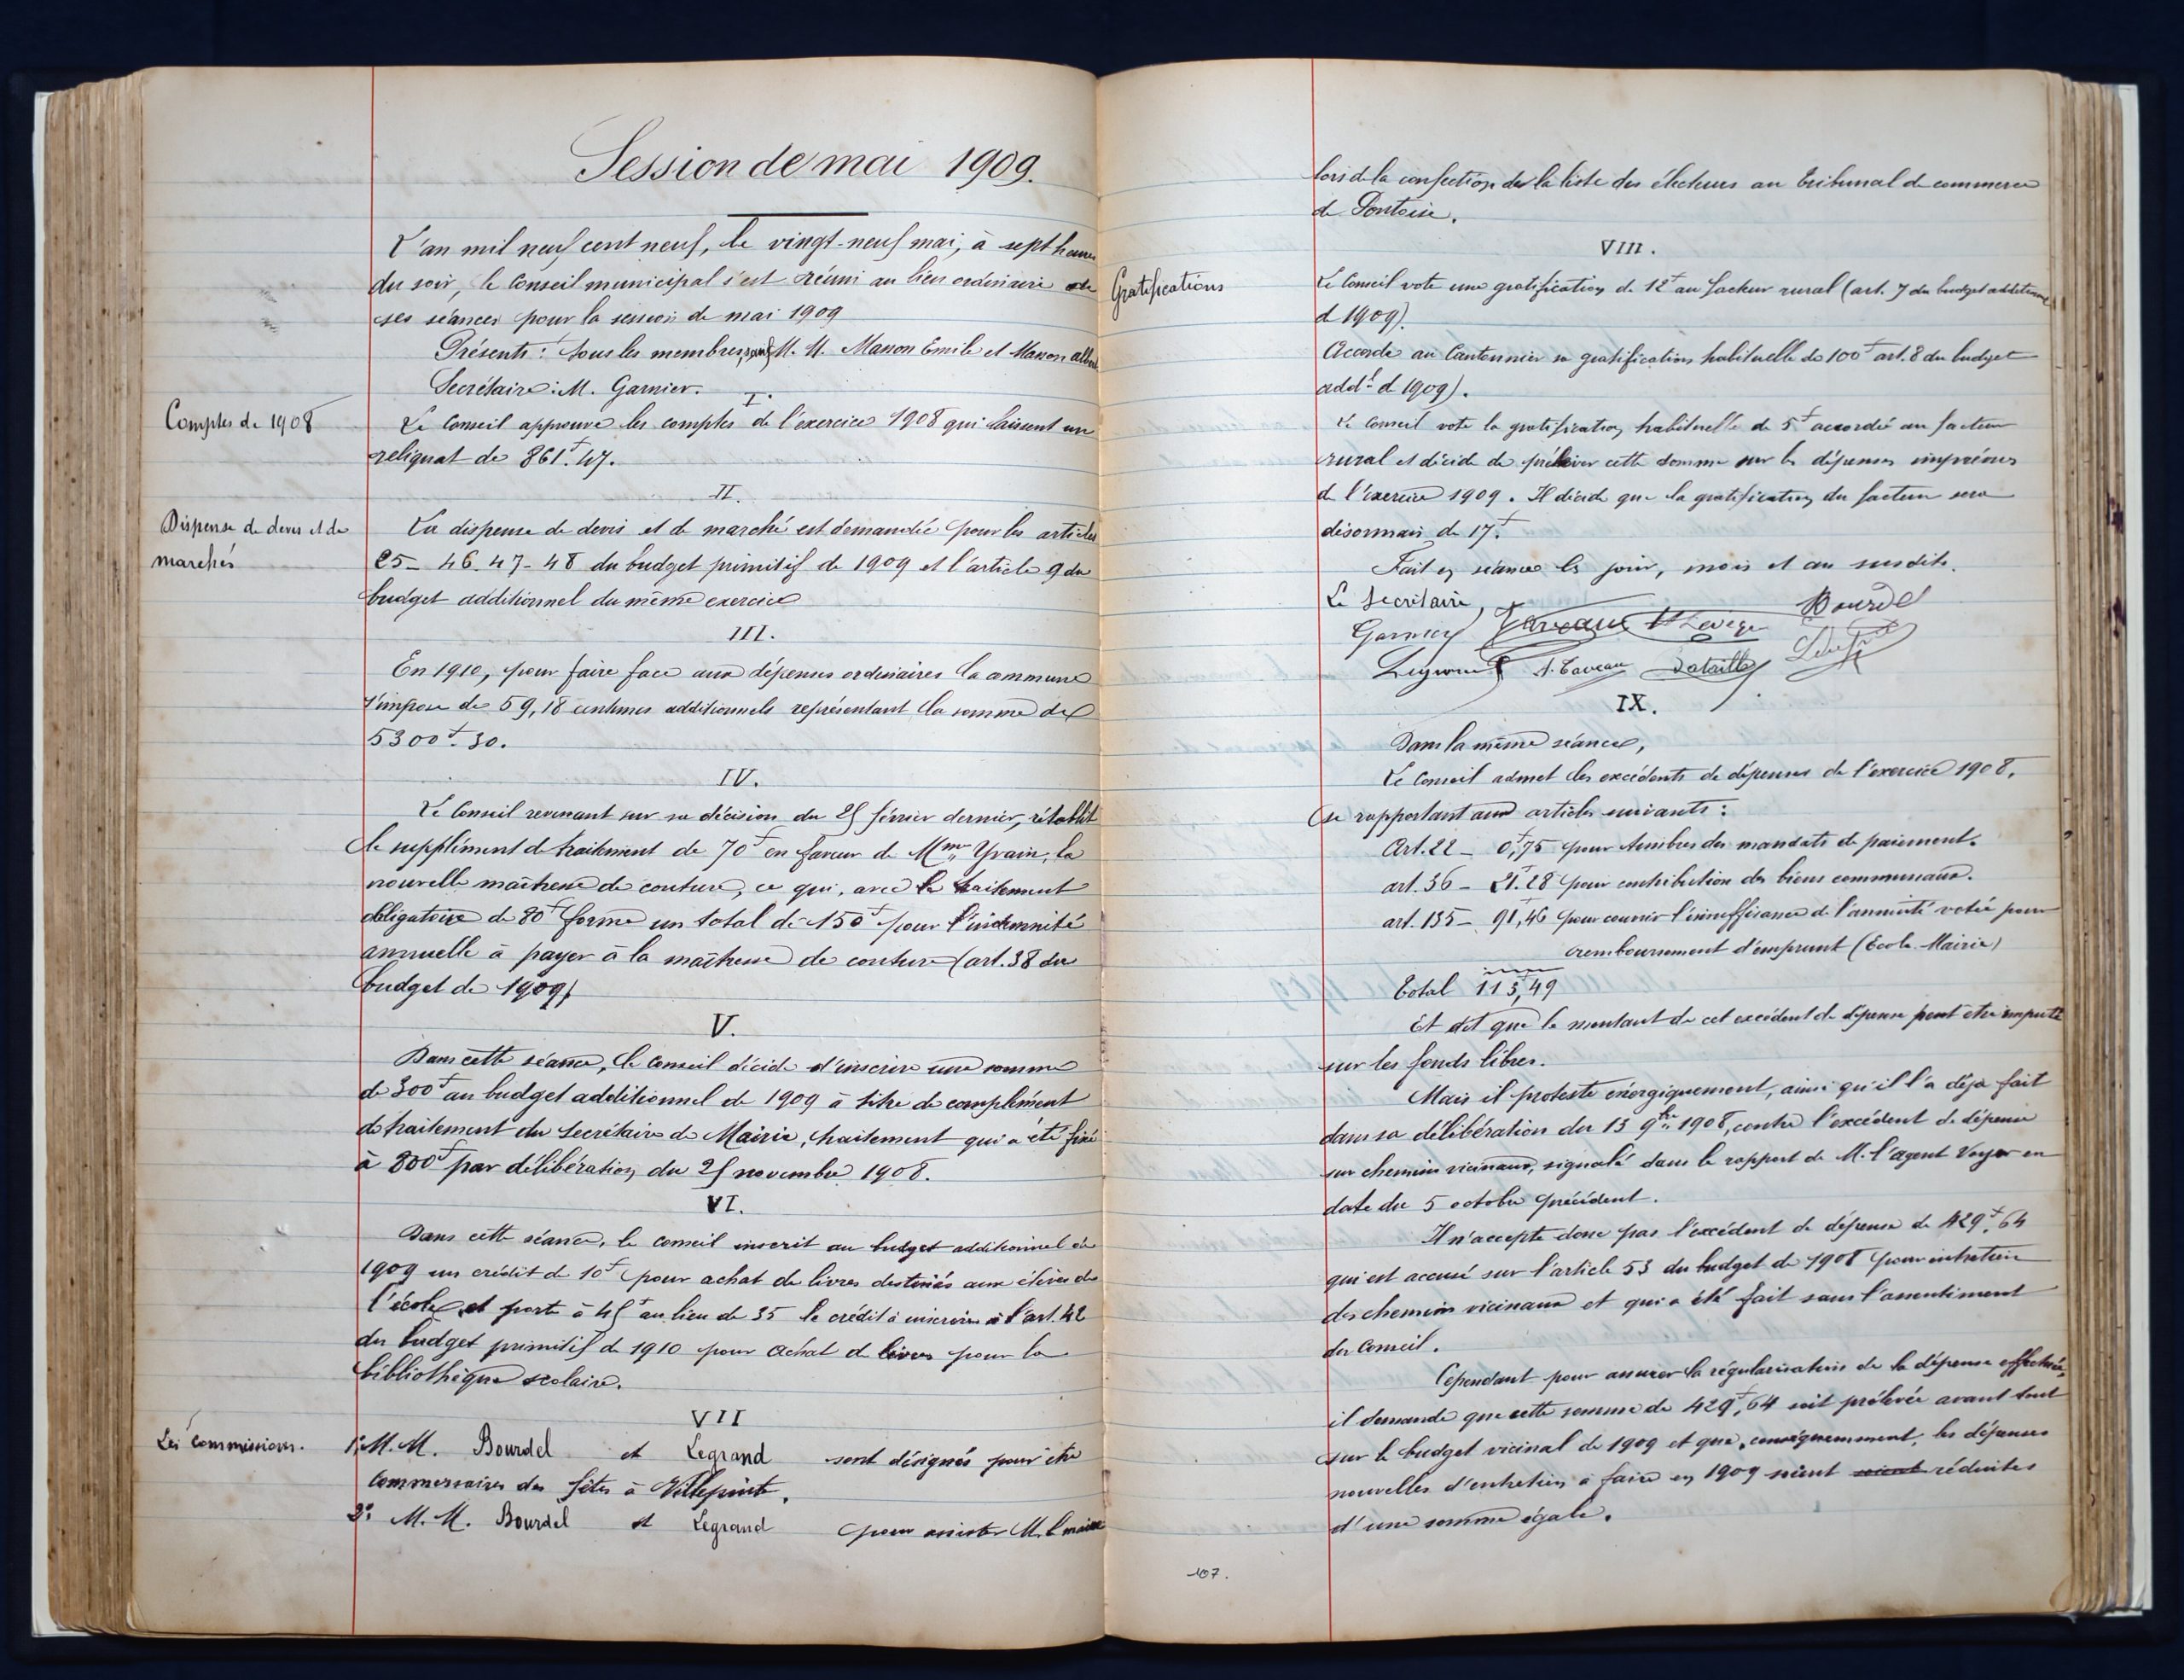 Session de mai 1909.
L'an mil neuf cent neuf, le vingt-neuf mai, à sept heures
du soir, le Conseil municipal s'est réuni au lieu ordinaire de
ses séances pour la session de mai 1909
Présents : tous les membres, sauf M. M. Masson Emile et Masson Albert
Secrétaire : M. Garnier.
I.
Comptes de 1908
Le Conseil approuve les comptes de l'exercice 1908 qui laissent un
reliquat de 861f.47.
II.
Dispense de devis et de
marchés
La dispense de devis et de marché est demandée pour les articles
25 - 46 - 47 - 48 du budget primitif de 1909 et l'article 9 du
budget additionnel du même exercice
III.
En 1910, pour faire face aux dépenses ordinaires la commune
s'impose de 59,18 centimes additionnels représentant la somme de
5300f.30.
IV.
Le Conseil revenant sur sa décision du 25 février dernier, rétablit
le supplément de traitement de 70f en faveur de Mme Yvain, la
nouvelle maîtresse de couture, ce qui, avec le traitement
obligatoire de 80f forme un total de 150f pour l'indemnité
annuelle à payer à la maîtresse de couture (art. 38 du
budget de 1909)
V.
Dans cette séance, le Conseil décide d'inscrire une somme
de 300f au budget additionnel de 1909 à titre de complément
de traitement du Secrétaire de Mairie, traitement qui a été fixé
à 800f par délibération du 25 novembre 1908.
VI.
Dans cette séance, le conseil inscrit au budget additionnel de
1909 un crédit de 10f pour achat de livres destinés aux élèves de
l'école et porte à 45f au lieu de 35 le crédit à inscrire à l'art. 42
du budget primitif de 1910 pour achat de livres pour la
bibliothèque scolaire.
VII
Les commissions.
1° M. M. Bourdel et Legrand sont désignés pour être
Commissaires des fêtes à Villepinte.
2° M. M. Bourdel et Legrand pour assister M. le maire
lors de la confection de la liste des électeurs au Tribunal de commerce
de Pontoise.
VIII.
Gratifications
Le Conseil vote une gratification de 12f au facteur rural (art. 7 du budget additionnel
de 1909).
Accorde au Cantonnier sa gratification habituelle de 100f art. 8 du budget
addel de 1909).
Le Conseil vote la gratification habituelle de 5f accordée au facteur
rural et décide de prélever cette somme sur les dépenses imprévues
de l'exercice 1909. Il décide que la gratification du facteur sera
désormais de 17f.
Fait en séance les jour, mois et an susdits.
Le Secrétaire,
Bourdel
Garnier
Legrand A. Taveau Bataille
IX.
Dans la même séance,
Le Conseil admet les excédents de dépenses de l'exercice 1908,
se rapportant aux articles suivants :
Art. 22 - 0f,75 pour timbres des mandats de paiement.
art. 36 - 21f.28 pour contribution des biens communaux.
art. 135 - 91f,46 pour couvrir l'insuffisance de l'annuité votée pour
remboursement d'emprunt (Ecole-Mairie)
Total 113f,49
Et dit que le montant de cet excédent de dépense peut être imputé
sur les fonds libres.
Mais il proteste énergiquement, ainsi qu'il l'a déjà fait
dans sa délibération du 13 9bre 1908, contre l'excédent de dépense
sur chemins vicinaux, signalé dans le rapport de M. l'agent Voyer en
date du 5 octobre précédent.
Il n'accepte donc pas l'excédent de dépense de 429f,64
qui est accusé sur l'article 53 du budget de 1908 pour entretien
des chemins vicinaux et qui a été fait sans l'assentiment
du Conseil.
Cependant pour assurer la régularisation de la dépense effectuée,
il demande que cette somme de 429f,64 soit prélevée avant tout
sur le budget vicinal de 1909 et que, conséquemment, les dépenses
nouvelles d'entretien à faire en 1909 soient soient réduites
d'une somme égale.
107.